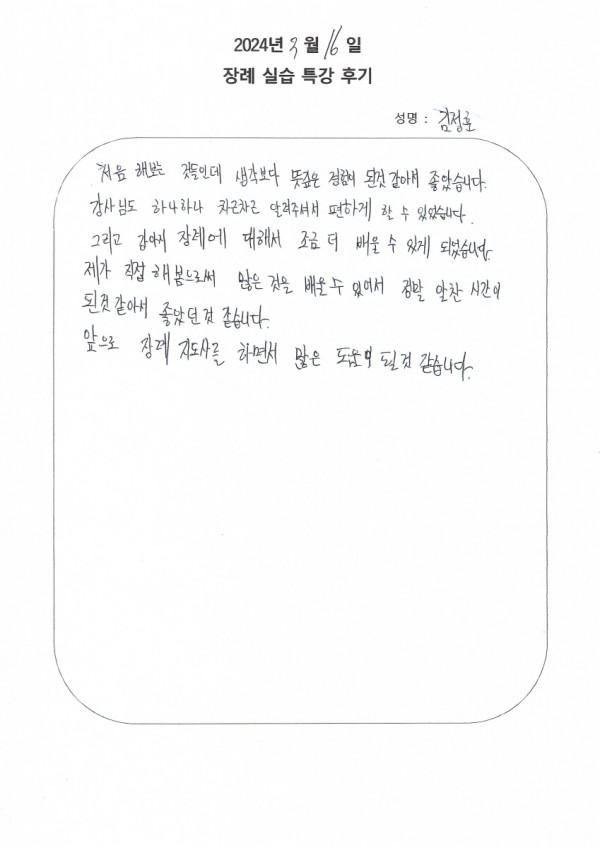 2024년 3월 16일
장례 실습 특강 후기
성명 : 김정훈
처음 해보는 것들인데 생각보다 뜻깊은 경험이 된것 같아서 좋았습니다.
강사님도 하나하나 차근차근 알려주셔서 편하게 할 수 있었습니다.
그리고 장례에 대해서 조금 더 배울 수 있게 되었습니다.
제가 직접 해봄으로써 많은 것을 배울 수 있어서 정말 알찬 시간이
된것 같아서 좋았던 것 같습니다.
앞으로 장례 지도사를 하면서 많은 도움이 될것 같습니다.